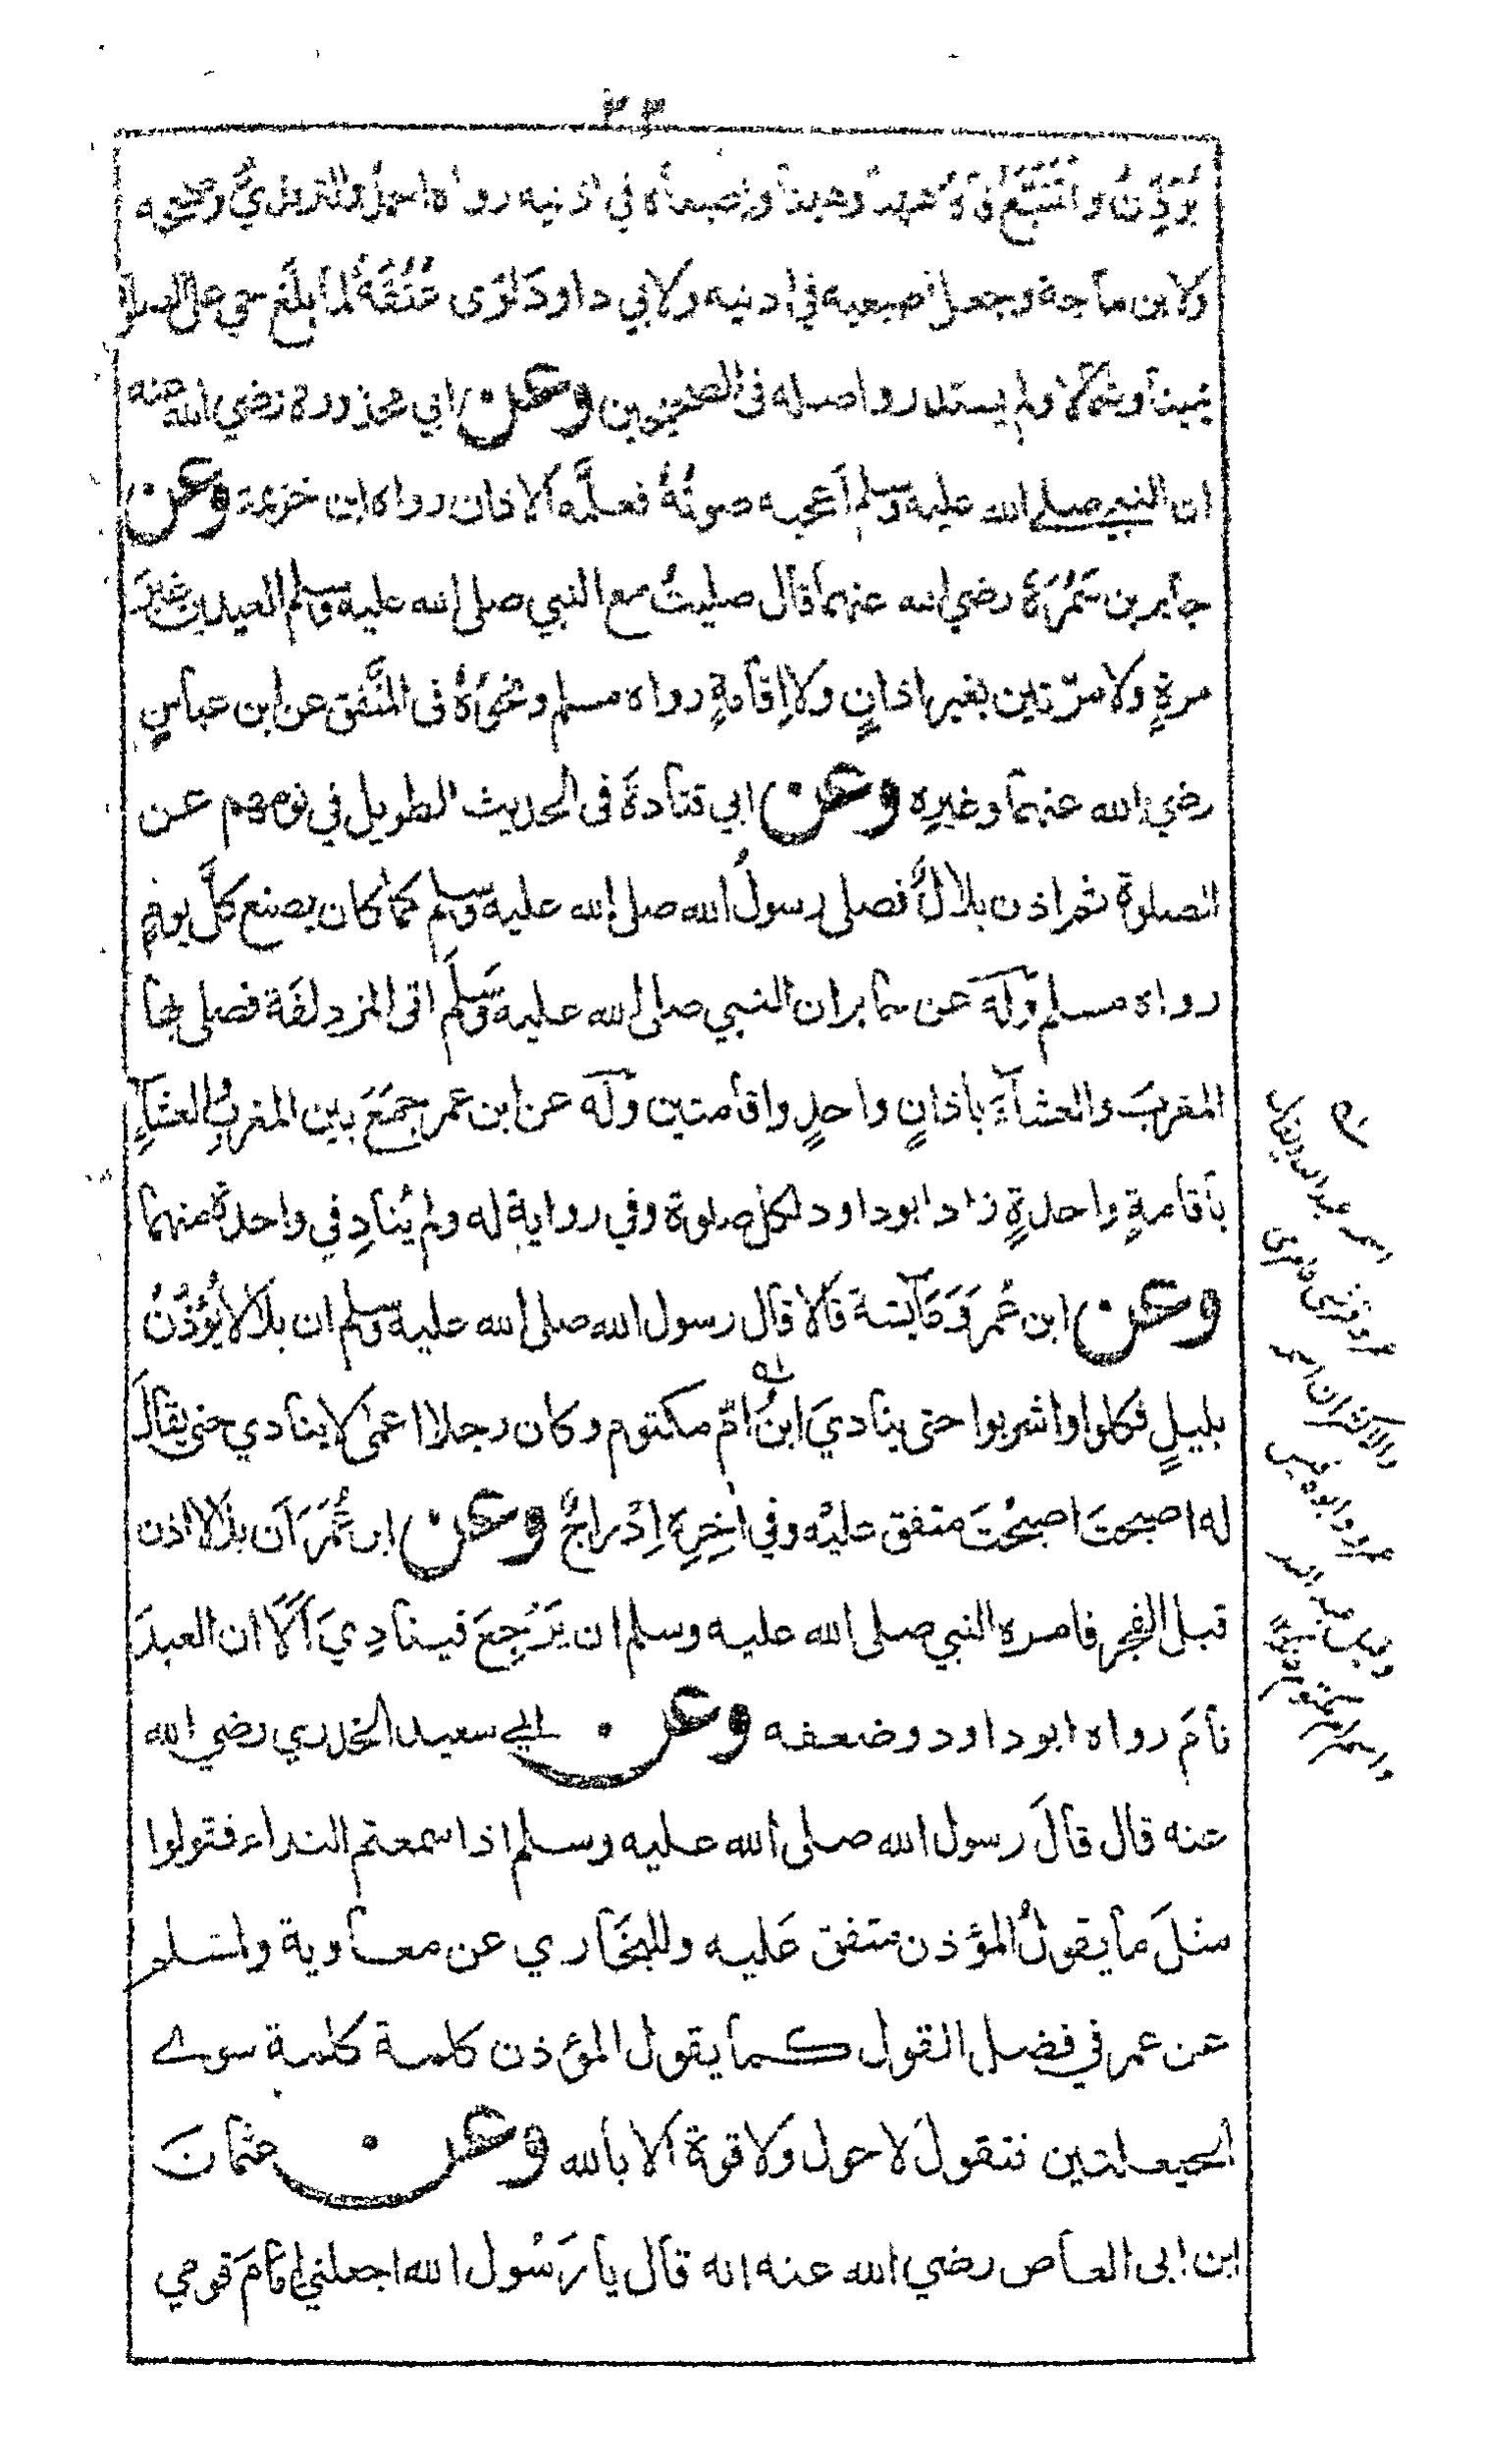 ٣٣
يُؤَذِّنُ وَاَتَتَبَّعُ فَاهُ ههنا وههنا واِصبعاه في اذنيه رواه احمدُ والترمذيُّ وصححه
ولابن ماجة وجعل اصبعيه في اذنيه ولابي داودَ لَوَى عُنُقَهُ لما بلَغَ حيَّ على الصلوة
يمينا وشمالا ولم يستدر واصله فى الصحيحين وعن ابي محذورة رضي الله عنه
ان النبي صلى الله عليه وسلم اَعجبه صوتُهُ فعلَّمه الاذان رواه ابن خزيمة وعن
جابر بن سَمُرَةَ رضي الله عنهما قال صليتُ مع النبي صلى الله عليه وسلم العيدين غيرَ
مرةٍ ولا مرّتين بغير اذانٍ ولا اِقامةٍ رواه مسلم ونحوُهُ فى المتَّفق عن ابن عباسٍ
رضي الله عنهما وغيرِه وعن ابي قتادةَ فى الحديث الطويل في نومهم عن
الصلوة ثم اذن بلالٌ فصلى رسولُ الله صلى الله عليه وسلم كما كان يصنع كلَّ يومٍ
رواه مسلم وله عن جابر ان النبي صلى الله عليه وسَلم اتى المزدلفَة فصلى بها
المغربَ والعشآءَ باذانٍ واحدٍ واقامتين وله عن ابن عمر جمَعَ بين المغربِ والعشاءِ
باقامةٍ واحدةٍ زاد ابو داود لكل صلوة وفي رواية له ولم يُنادِ في واحدة منهما
وعن ابن عُمرَ وعَآئشة قالا قال رسول الله صلى الله عليه وسلم ان بلالا يُؤَذِّنُ
بليلٍ فكلوا واشربوا حتى يناديَ ابنُ امّ مكتوم وكان رجلا اعمى لا ينادي حتى يقالَ
له اصبحتَ اصبحْتَ متفق عليْه وفي اٰخِرِهٖ اِدْراجٌ وعن ابن عُمَرَ اَن بلَالا اذن
قبل الفجر فامره النبي صلى الله عليه وسلم ان يَرْجِعَ فينادِيَ اَلَا ان العبدَ
نامَ رواه ابو داود وضعفه وعن ابي سعيد الخدري رضي الله
عنه قال قالَ رسول الله صلى الله عليه وسلم اذا سمعتم النداء فقولوا
مثلَ ما يقولُ المؤذن متفق عَليه وللبخَاري عن معاوية ولمسلم
عن عمر في فضل القول كما يقول المؤذن كلمة كلمة سوى
الحيعلتين فتقولَ لا حول وَلا قوة الا بالله وعن عثمانَ
ابن ابى العاص رضي الله عنه انه قال يا رَسُول الله اجعلني امامَ قومي